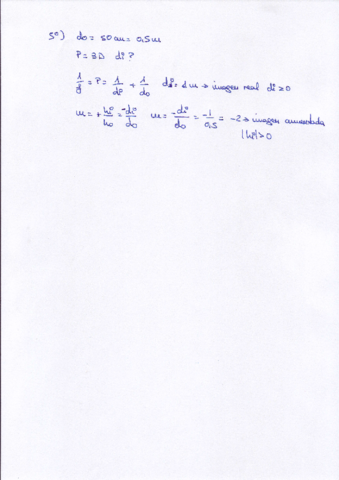 5º) do = 50 cm = 0,5 m
P = 3D di?
1/f = P = 1/di + 1/do di = 1 m → imagen real di ≥ 0
m = + hi/ho = -di/do m = -di/do = -1/0,5 = -2 → imagen aumentada
|hi| > 0